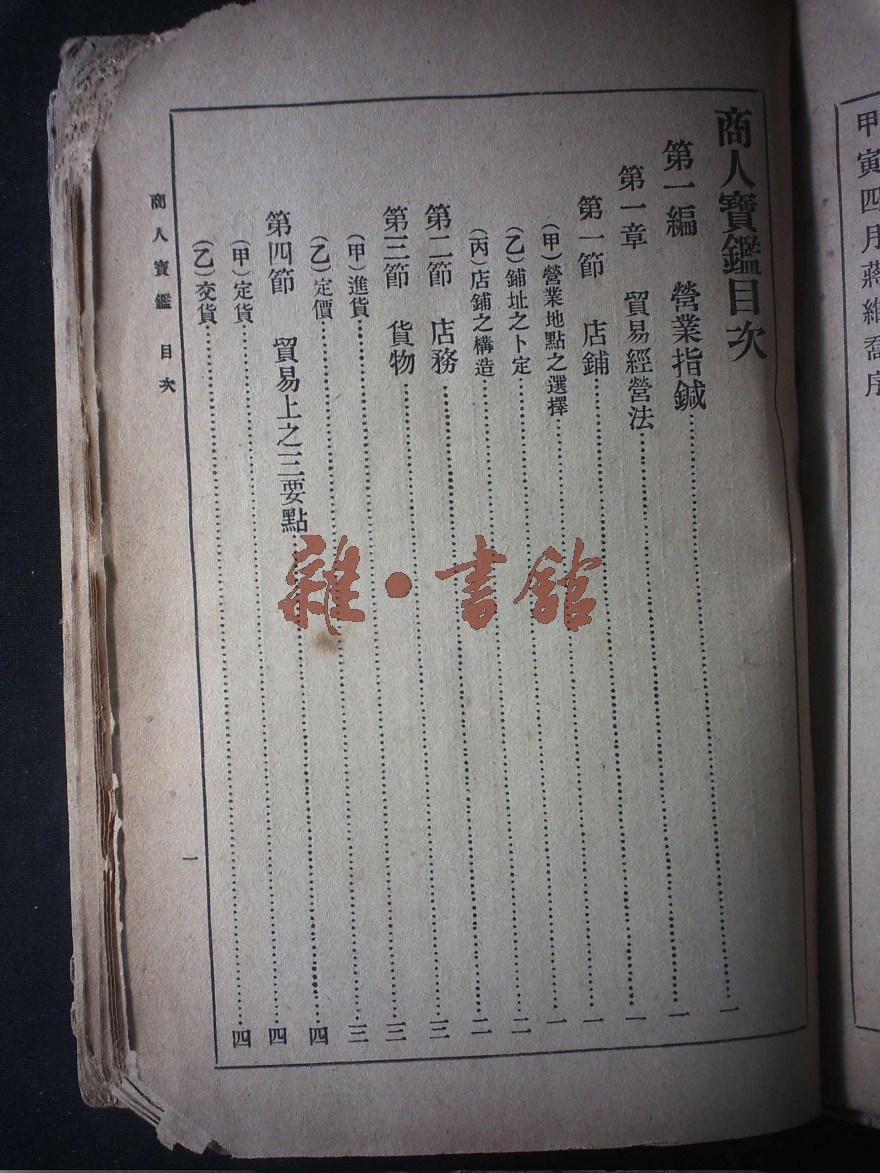 甲寅四月蔣維喬序
商人寶鑑目次
第一編 營業指鍼……一
第一章 貿易經營法……一
第一節 店鋪……一
(甲)營業地點之選擇……一
(乙)鋪址之卜定……一
(丙)店鋪之構造……二
第二節 店務……二
第三節 貨物……三
(甲)進貨……三
(乙)定價……三
第四節 貿易上之三要點……四
(甲)定貨……四
(乙)交貨……四
商人寶鑑 目次
一
雜·書館